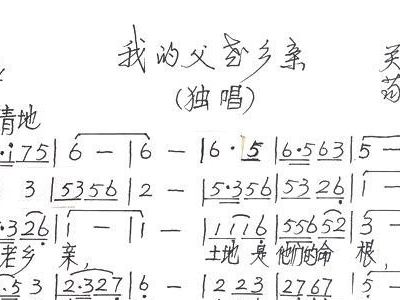 我的父老乡亲
(独唱)
情地
·i 7 5 | 6 – | 6 – | 6 · 5 | 6·563 | 5 –
3 | 5356 | 2 – | 5·356 | 5326 | 1 –
·326 | 1 – | 1 – | 1116 | 55652 | 3 –
老乡 亲, 土地 是 他们的命 根,
·53 | 2·327 | 6 · | 223 | 2767 | 5